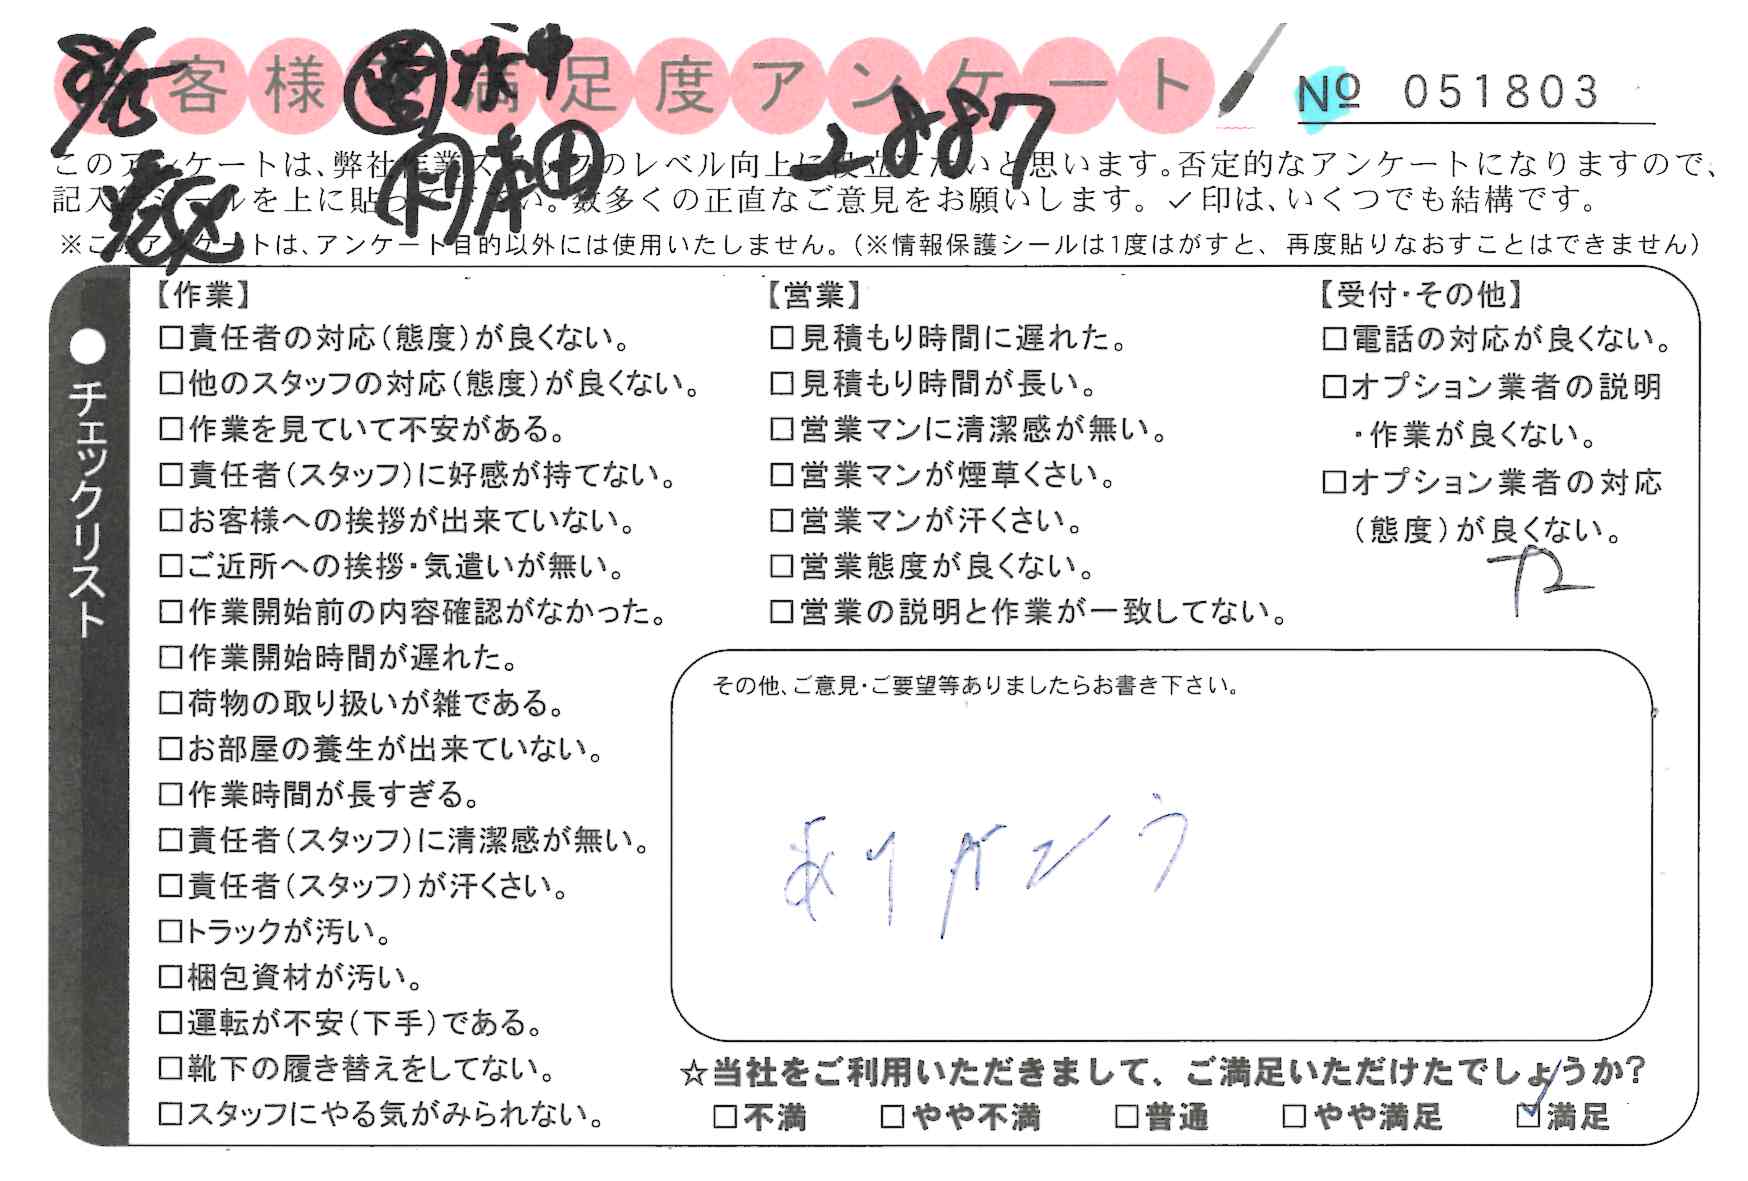 お客様の満足度アンケート
№ 051803
2887
このアンケートは、弊社作業スタッフのレベル向上に役立てたいと思います。否定的なアンケートになりますので、
記入後シールを上に貼って下さい。数多くの正直なご意見をお願いします。✓印は、いくつでも結構です。
※このアンケートは、アンケート目的以外には使用いたしません。(※情報保護シールは1度はがすと、再度貼りなおすことはできません)
●チェックリスト
【作業】
□責任者の対応(態度)が良くない。
□他のスタッフの対応(態度)が良くない。
□作業を見ていて不安がある。
□責任者(スタッフ)に好感が持てない。
□お客様への挨拶が出来ていない。
□ご近所への挨拶・気遣いが無い。
□作業開始前の内容確認がなかった。
□作業開始時間が遅れた。
□荷物の取り扱いが雑である。
□お部屋の養生が出来ていない。
□作業時間が長すぎる。
□責任者(スタッフ)に清潔感が無い。
□責任者(スタッフ)が汗くさい。
□トラックが汚い。
□梱包資材が汚い。
□運転が不安(下手)である。
□靴下の履き替えをしてない。
□スタッフにやる気がみられない。
【営業】
□見積もり時間に遅れた。
□見積もり時間が長い。
□営業マンに清潔感が無い。
□営業マンが煙草くさい。
□営業マンが汗くさい。
□営業態度が良くない。
□営業の説明と作業が一致してない。
【受付・その他】
□電話の対応が良くない。
□オプション業者の説明
・作業が良くない。
□オプション業者の対応
(態度)が良くない。
その他、ご意見・ご要望等ありましたらお書き下さい。
ありがとう
☆当社をご利用いただきまして、ご満足いただけたでしょうか?
□不満 □やや不満 □普通 □やや満足 ☑満足